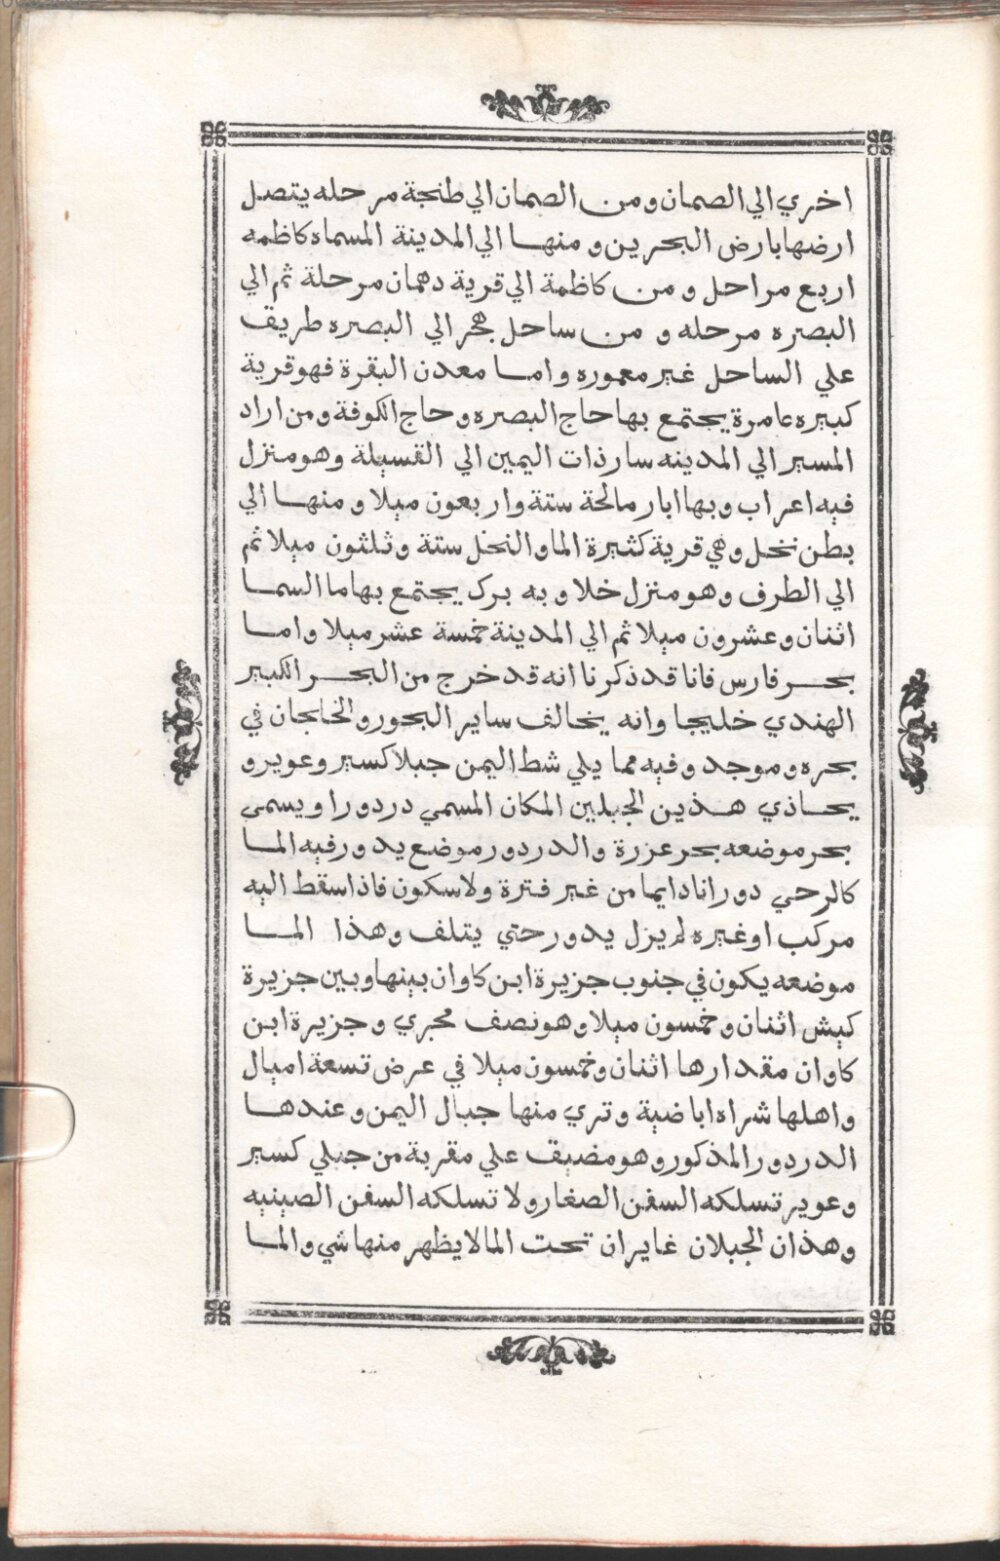 اخري الي الصمان ومن الصمان الي طنجة مرحله يتصل
ارضها بارض البحرين و منها الي المدينة المسماه كاظمه
اربع مراحل و من كاظمة الي قرية دهمان مرحلة ثم الي
البصره مرحله و من ساحل هجر الي البصره طريق
علي الساحل غير معموره واما معدن البقرة فهو قرية
كبيره عامرة يجتمع بها حاج البصره وحاج الكوفة ومن اراد
المسير الي المدينه سار ذات اليمين الي القسيلة وهو منزل
فيه اعراب وبها ابار مالحة ستة واربعون ميلا و منها الي
بطن نخل وهي قرية كثيرة الما والنخل ستة وثلثون ميلا ثم
الي الطرف وهو منزل خلا و به برك يجتمع بها ما السما
اثنان وعشرون ميلا ثم الي المدينة خمسة عشر ميلا واما
بحر فارس فانا قد ذكرنا انه قد خرج من البحر الكبير
الهندي خليجا وانه يخالف ساير البحور والخلجان في
بحره وموجد وفيه مما يلي شط اليمن جبلا كسير وعوير و
يحاذي هذين الجبلين المكان المسمي دردورا ويسمى
بحر موضعه بحر عزرة والدردور موضع يدور فيه الما
كالرحي دورانا دايما من غير فترة ولا سكون فاذا سقط اليه
مركب او غيره لم يزل يدور حتي يتلف وهذا الما
موضعه يكون في جنوب جزيرة ابن كاوان بينها وبين جزيرة
كيش اثنان وخمسون ميلا وهو نصف مجري وجزيرة ابن
كاوان مقدارها اثنان وخمسون ميلا في عرض تسعة اميال
واهلها شراه اباضية وتري منها جبال اليمن وعندها
الدردور المذكور وهو مضيق علي مقربة من جبلي كسير
وعوير تسلكه السفن الصغار ولا تسلكه السفن الصينيه
وهذان الجبلان غايران تحت الما لا يظهر منها شي والما